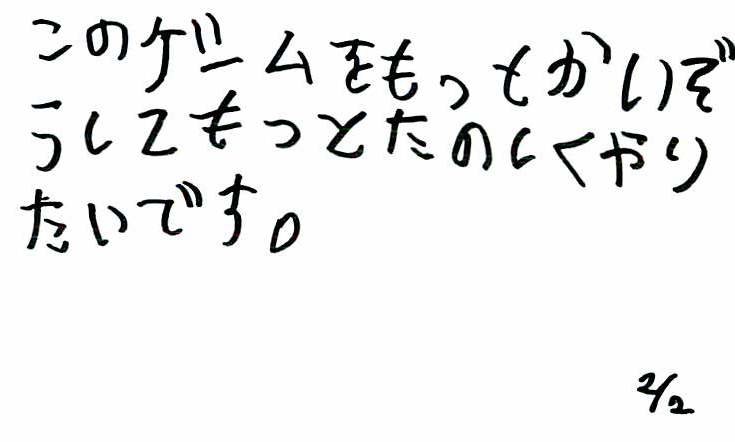 このゲームをもっとかいぞ
うしてもっとたのしくやり
たいです。
2/2